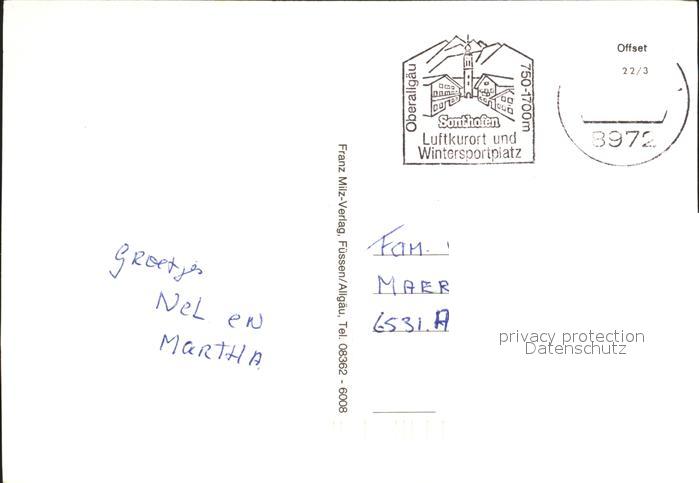 Offset
22/3
Oberallgäu
750-1700m
Sonthofen
Luftkurort und
Wintersportplatz
8972
Franz Milz-Verlag, Füssen/Allgäu, Tel. 08362 - 6008
Groetjes
Nel en
Martha
Fam.
MAER
6531.A
privacy protection
Datenschutz